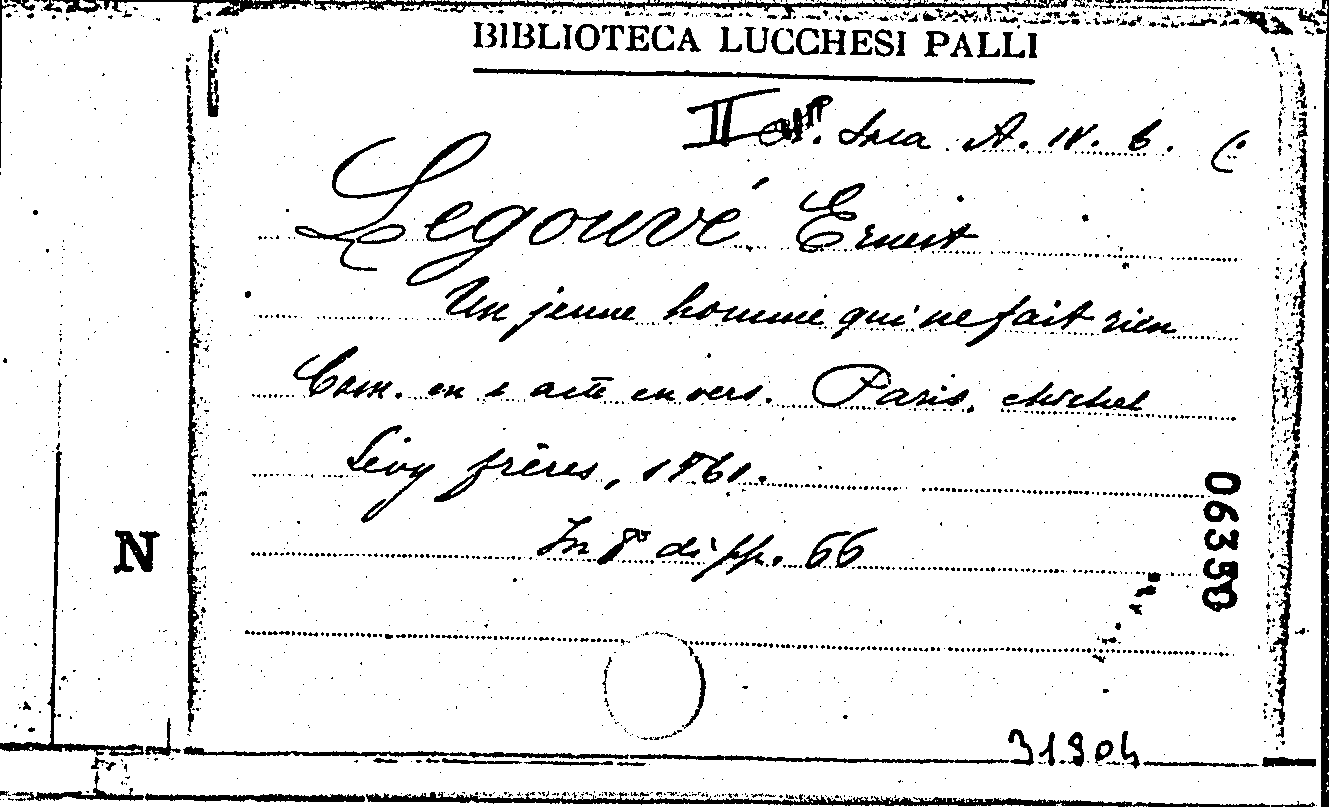 BIBLIOTECA LUCCHESI PALLI
II Sala A. IV. 6.
Legouvé Ernest
Un jeune homme qui ne fait rien
Com. en 1 acte en vers. Paris, Michel
Lévy frères, 1861.
In 8° di pp. 66
N
06350
31904